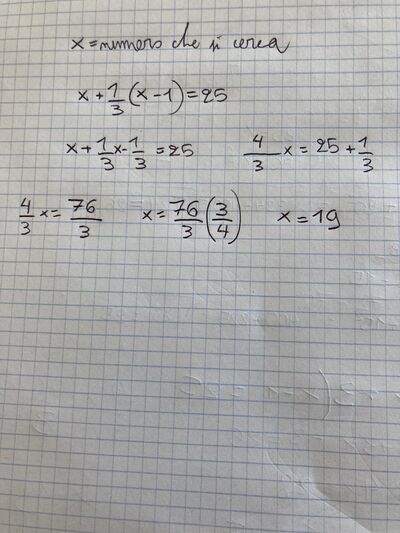 x = numero che si cerca
x + 1/3 (x - 1) = 25
x + 1/3 x - 1/3 = 25 4/3 x = 25 + 1/3
4/3 x = 76/3 x = 76/3 (3/4) x = 19